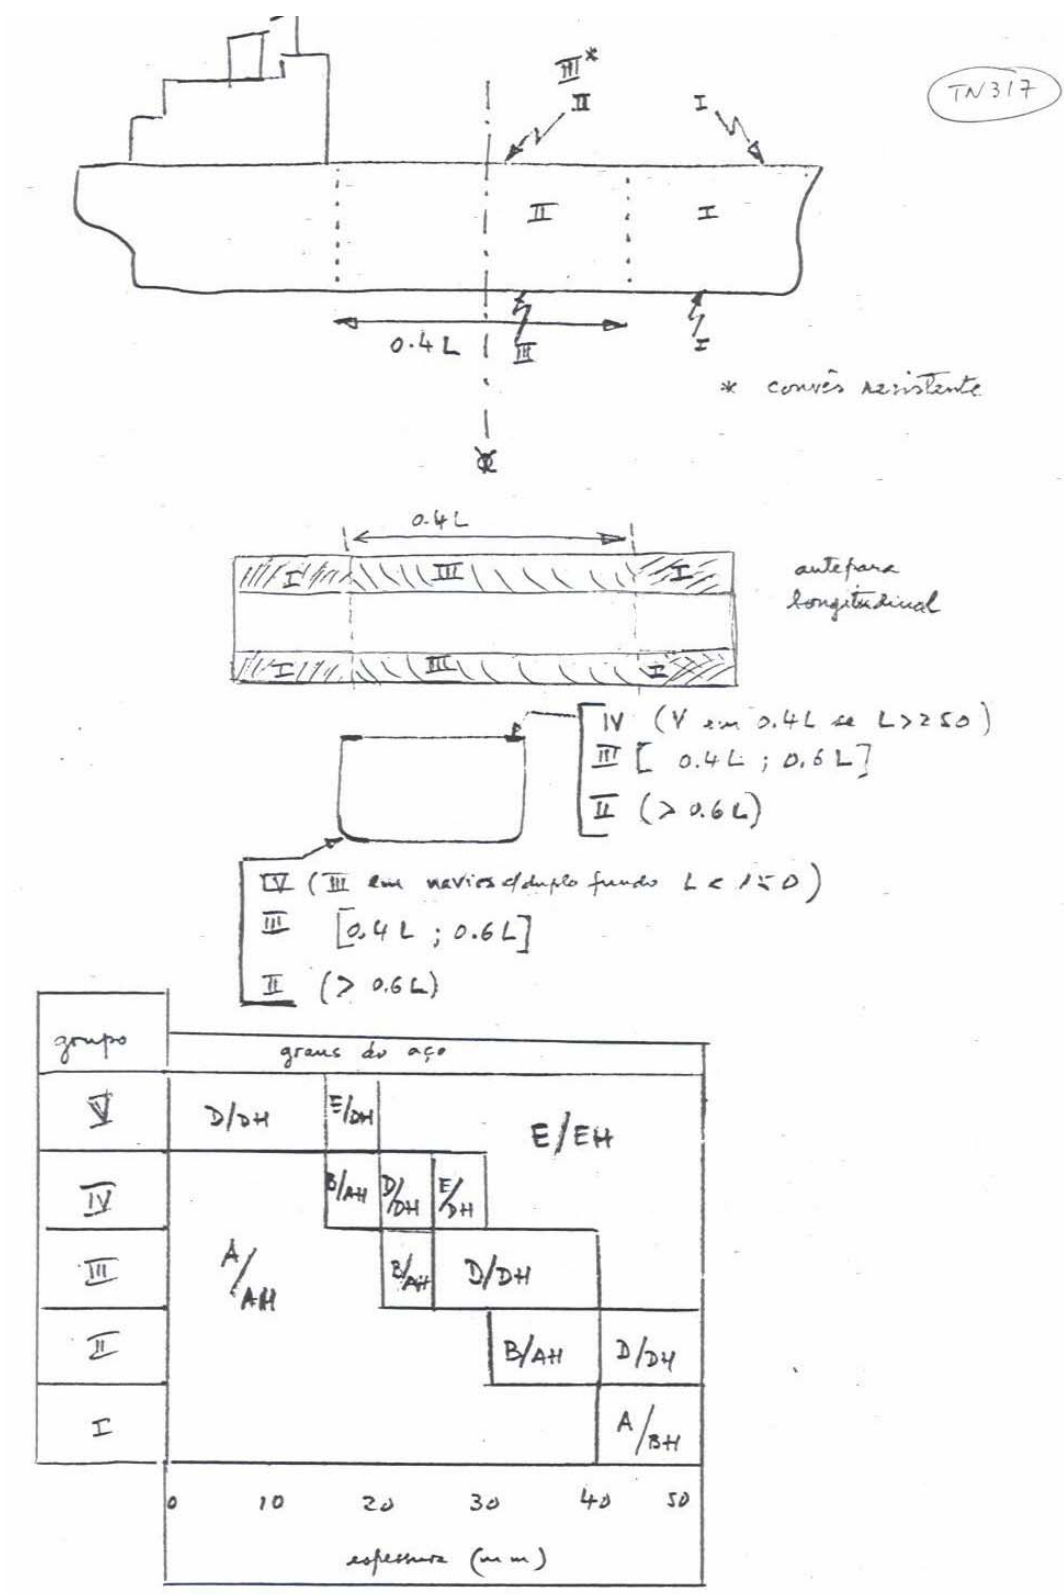 TN317
III*
II
I
II
I
0.4L
III
I
* convés resistente
0.4L
I
III
I
antepara
longitudinal
I
III
I
IV (V em 0.4L se L>250)
III [0.4L ; 0.6L]
II (> 0.6L)
IV (III em navios c/duplo fundo L < 150)
III [0.4L ; 0.6L]
II (> 0.6L)
grupo
graus do aço
V
D/DH
E/DH
E/EH
IV
B/AH
D/DH
E/DH
III
A/AH
B/AH
D/DH
II
B/AH
D/DH
I
A/BH
0 10 20 30 40 50
espessura (mm)